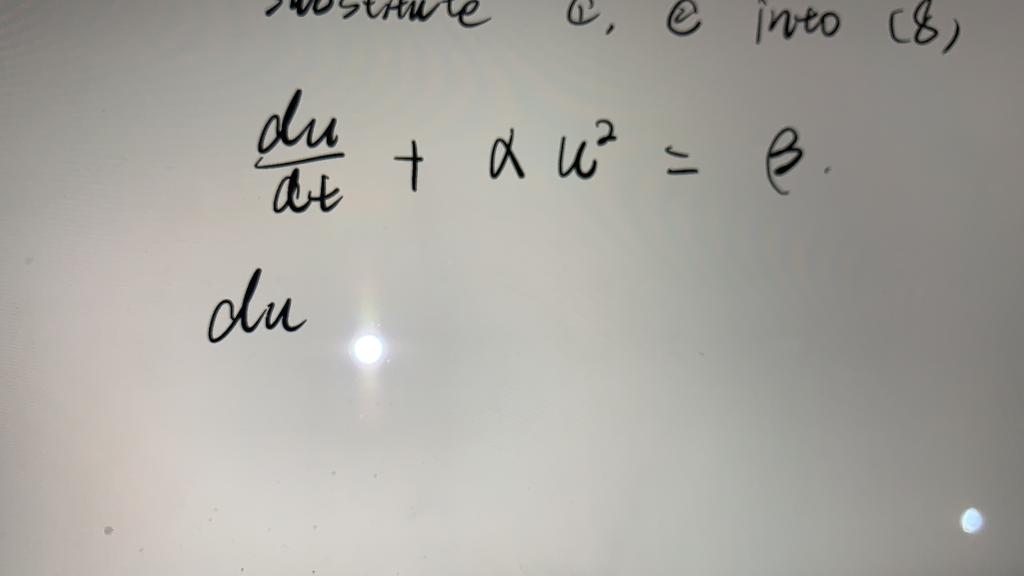 substitute ①, ② into (8)
du/dt + α u² = β.
du